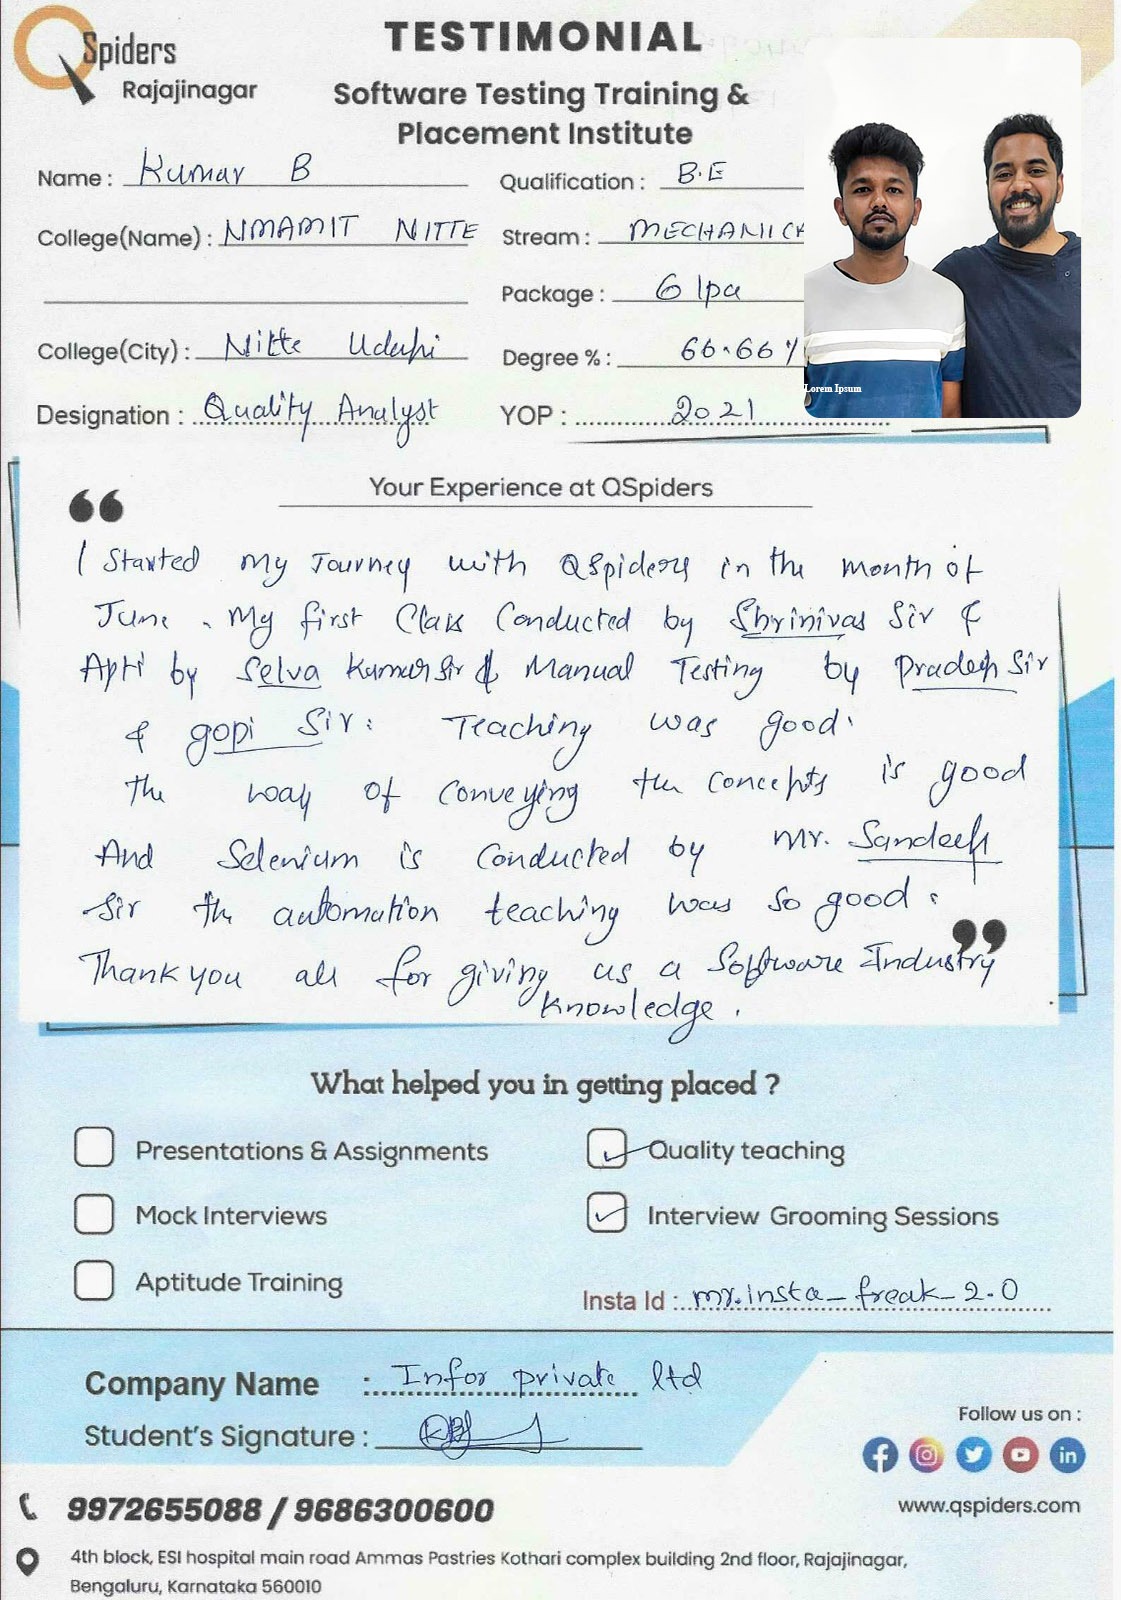 QSpiders
Rajajinagar
TESTIMONIAL
Software Testing Training &
Placement Institute
Name : Kumar B
Qualification : B.E
College(Name) : NMAMIT NITTE
Stream : MECHANICK
Package : 6 lpa
College(City) : Nitte Udupi
Degree % : 66.66 %
Designation : Quality Analyst
YOP : 2021
Lorem Ipsum
Your Experience at QSpiders
“
I Started My Journey with QSpiders in the month of
June. My first Class Conducted by Shrinivas Sir &
Apti by Selva Kumar Sir & Manual Testing by Pradeep Sir
& gopi Sir. Teaching was good.
The way of conveying the concepts is good
And Selenium is conducted by Mr. Sandeep
Sir the automation teaching was so good.
Thank you all for giving us a Software Industry
knowledge.
”
What helped you in getting placed ?
Presentations & Assignments
Quality teaching
Mock Interviews
Interview Grooming Sessions
Aptitude Training
Insta Id : mr.insta_freak_2.0
Company Name : Infor private ltd
Student's Signature :
Follow us on :
9972655088 / 9686300600
www.qspiders.com
4th block, ESI hospital main road Ammas Pastries Kothari complex building 2nd floor, Rajajinagar,
Bengaluru, Karnataka 560010